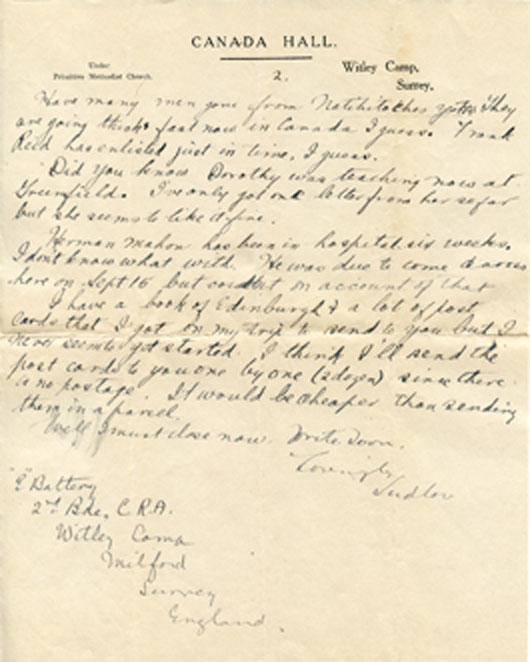 CANADA HALL.
Under
Primitive Methodist Church.
2.
Witley Camp,
Surrey.
Have many men gone from Natchitoches yet? They
are going think fast now in Canada I guess. Frank
Reid has enlisted just in time, I guess.
Did you know Dorothy was teaching now at
Greenfield. I've only got one letter from her so far
but she seems to like it fine.
Herman Mahon has been in hospital six weeks.
I don't know what with. He was due to come
here on Sept 15 but couldn't on account of that
I have a book of Edinburgh & a lot of post
cards that I got on my trip to send to you but I
never seem to get started. I think I'll send the
post cards to you one by one (2 dozen) since there
is no postage. It would be cheaper than sending
them in a parcel.
Well I must close now. Write Soon.
Lovingly
Ludlow
"E" Battery
2nd Bde, C.R.A.
Witley Camp
Milford
Surrey
England.